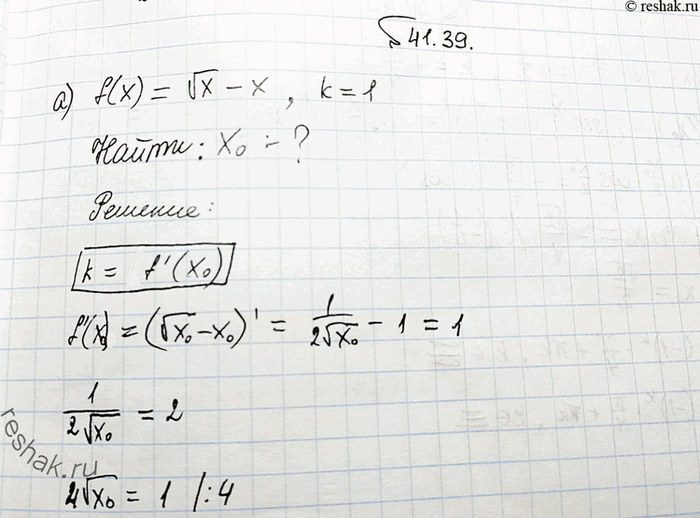 © reshak.ru
41.39.
а) f(x) = √x − x , k = 1
Найти: x₀ − ?
Решение:
k = f'(x₀)
f'(x₀) = (√x₀ − x₀)' = 1/(2√x₀) − 1 = 1
1/(2√x₀) = 2
4√x₀ = 1 |:4
reshak.ru